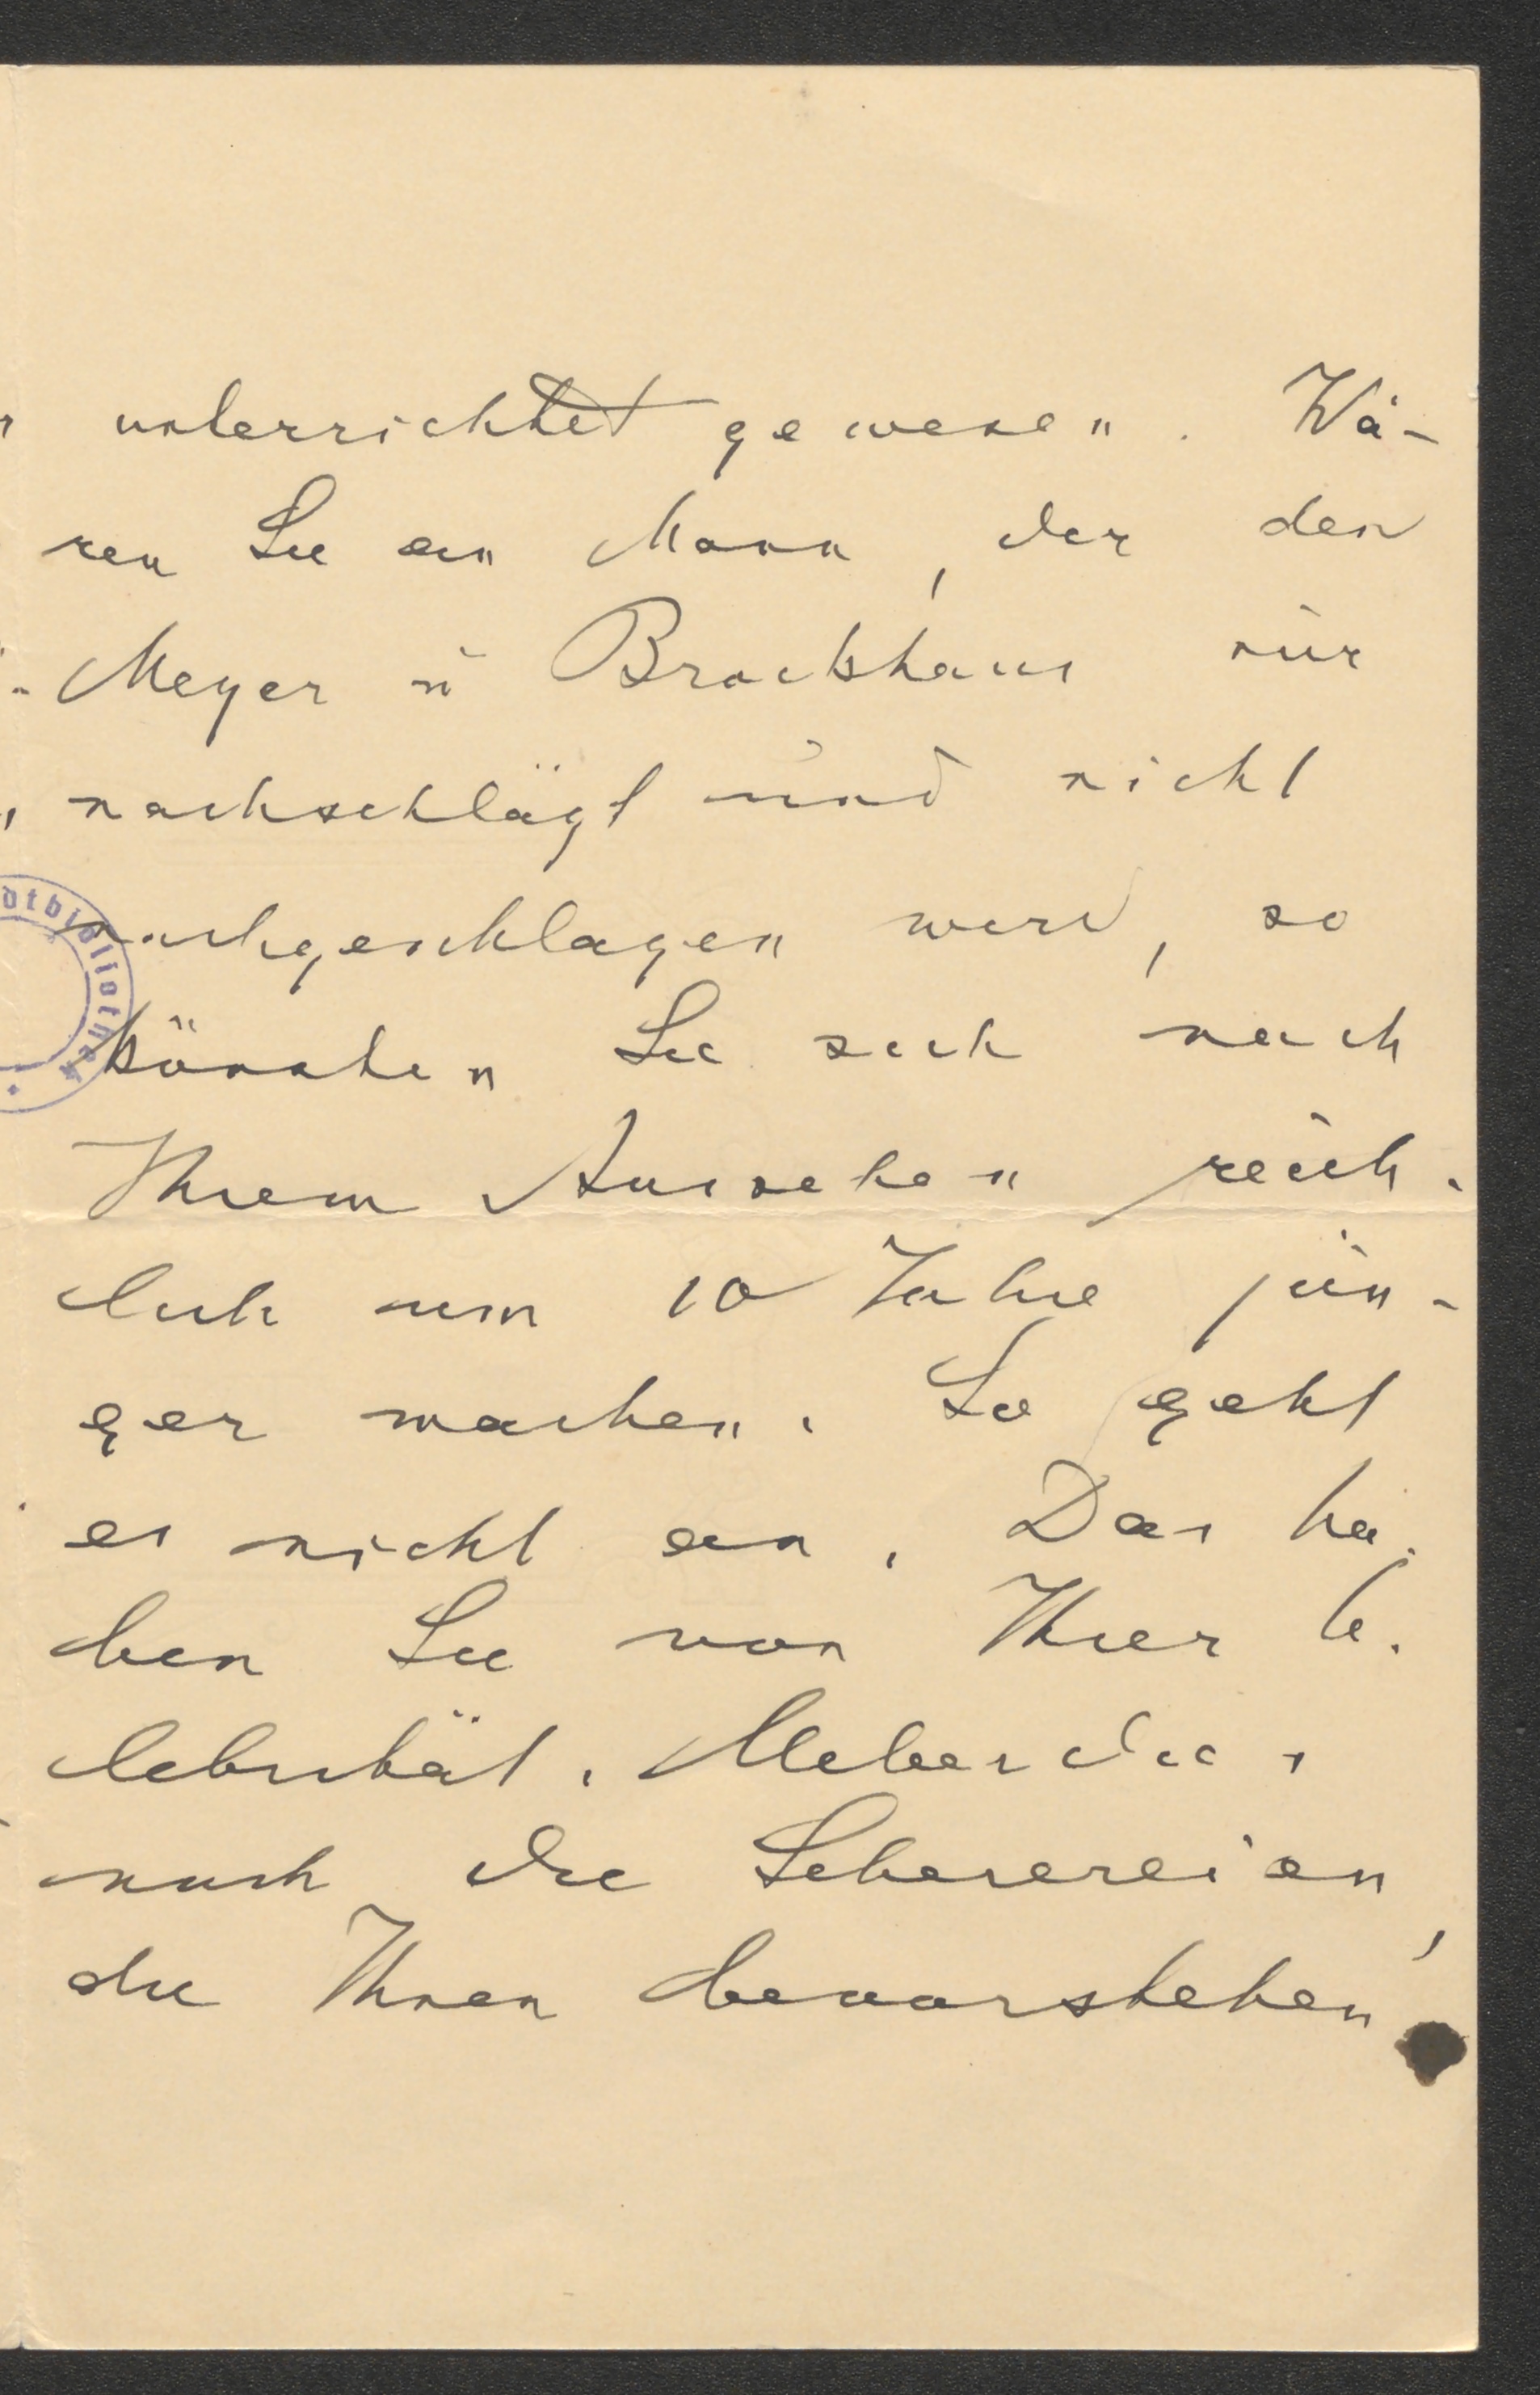 unterrichtet gewesen. Wä-
ren Sie ein Mann, der den
Meyer u Brockhaus nur
nachschlägt und nicht
nachgeschlagen wird, so
könnten Sie sich nach
Ihrem Aussehen reich-
lich um 10 Jahre jün-
ger machen. So geht
es nicht an. Das ha-
ben Sie von Ihrer Ce-
lebrität. Ueberdies
noch die Scherereien,
die Ihnen bevorstehen
dtbibliothek